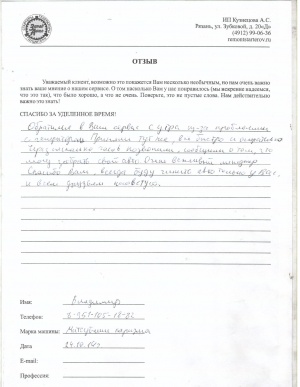 ИП Кузнецова А.С.
Рязань, ул. Зубковой, д. 20«Д»
(4912) 99-06-36
remontstarterov.ru
ОТЗЫВ
Уважаемый клиент, возможно это покажется Вам несколько необычным, но нам очень важно
знать ваше мнение о нашем сервисе. О том насколько Вам у нас понравилось (мы искренне надеемся,
что это так), что было хорошо, а что не очень. Поверьте, это не пустые слова. Нам действительно
важно это знать!
СПАСИБО ЗА УДЕЛЕННОЕ ВРЕМЯ!
Обратился в Ваш сервис с утра из-за проблемы
с генератором. Приняли быстро, все быстро и
через несколько часов позвонили, сообщили о том, что
могу забрать своё авто. Очень вежливый менеджер
Спасибо вам, всегда буду чинить авто только у Вас,
и всем друзьям посоветую.
Имя: Владимир
Телефон:
Марка машины: Митсубиши каризма
Дата
E-mail:
Профессия: